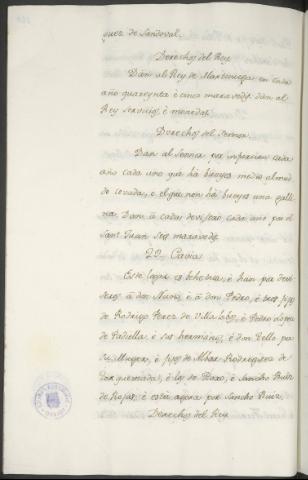 quez de Sandoval.
Derechos del Rey
Dan al Rey de Martiniega en cada
año quarenta è cinco maravedis. dan al
Rey servicios, è monedas.
Derechos del Señor
Dan al Sennor por infurcion cada
año cada uno que ha bueyes medio almud
de cevada, e el que non ha bueyes una galli-
na. Dan à cada devisero cada año por el
Sant Juan Seis maravedis.
22. Cavia
Este logar es behetria, è han por devi-
seros à don Nuño, è à don Pedro, è los fijos
de Rodrigo Perez de Villalobos, è Pedro Lopez
de Padiella, è sus hermanos, è don Tello por
su Muger, è fijos de Albar Rodriguez de
Torquemada, è los de Pozo, è Sancho Ruiz
de Rojas, è está agora por Sancho Ruiz.
Derechos del Rey